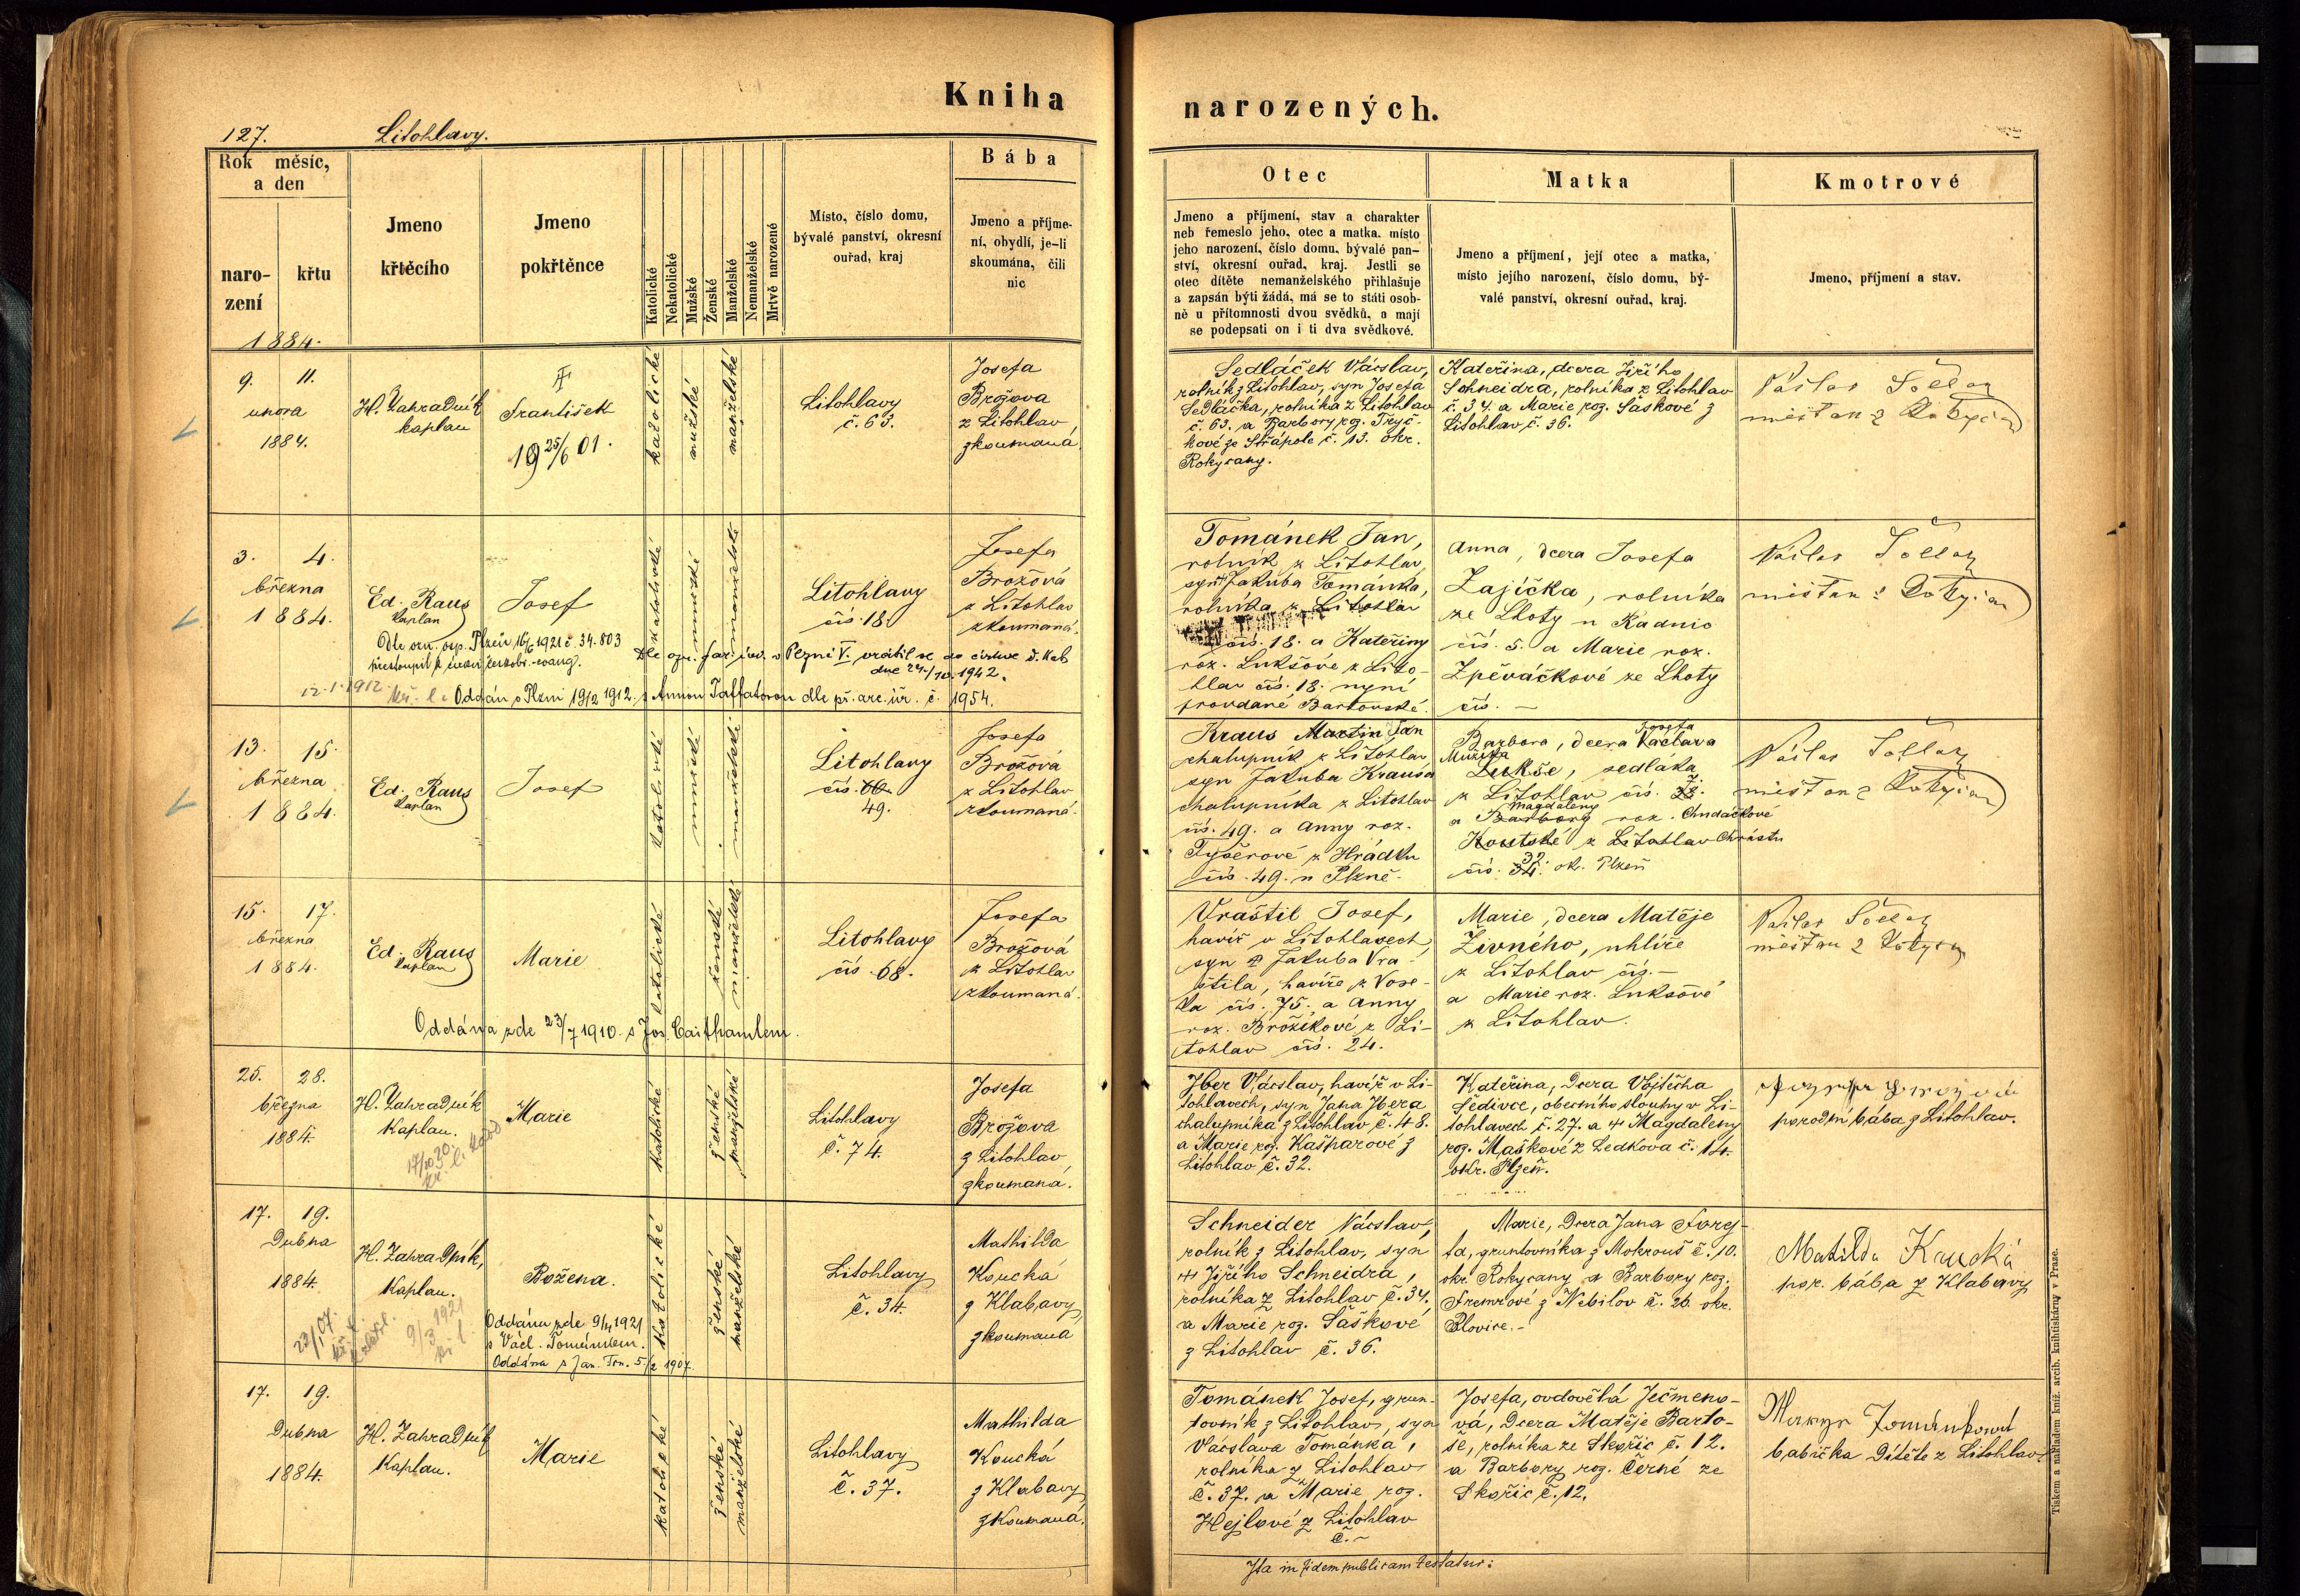 Kniha
narozených.
127. Litohlavy.
Rok měsíc,
a den
naro-
zení
křtu
Jmeno
křtěcího
Jmeno
pokřtěnce
Katolické
Nekatolické
Mužské
Ženské
Manželské
Nemanželské
Mrtvě narozené
Místo, číslo domu,
bývalé panství, okresní
ouřad, kraj
Bába
Jmeno a příjme-
ní, obydlí, je-li
skoumána, čili
nic
Otec
Jmeno a příjmení, stav a charakter
neb řemeslo jeho, otec a matka, místo
jeho narození, číslo domu, bývalé pan-
ství, okresní ouřad, kraj. Jestli se
otec dítěte nemanželského přihlašuje
a zapsán býti žádá, má se to státi osob-
ně u přítomnosti dvou svědků, a mají
se podepsati on i ti dva svědkové.
Matka
Jmeno a příjmení, její otec a matka,
místo jejího narození, číslo domu, bý-
valé panství, okresní ouřad, kraj.
Kmotrové
Jmeno, příjmení a stav.
1884.
9. 11.
února
1884.
H. Zahradník
kaplan
František
19 25/6 01.
katolické
mužské
manželské
Litohlavy
č. 63.
Josefa
Brožova
z Litohlav,
zkoumaná.
Sedláček Václav,
rolník z Litohlav, syn Josefa
Sedláčka, rolníka z Litohlav
č. 63. a Barbory roz. Tryč-
kové ze Střápole č. 13. okr.
Rokycany.
Kateřina, dcera Jiřího
Schneidra, rolníka z Litohlav
č. 34. a Marie roz. Šaškové z
Litohlav č. 36.
měšťan z
3. 4.
března
1884.
Ed. Raus
kaplan
Josef
katolické
mužské
manželské
Litohlavy
čís. 18.
Josefa
Brožová
z Litohlav
zkoumaná.
Dle ozn. osp. Plzeň 16/6 1921 č. 34.803
přestoupil k církvi českobr.-evang.
Dle ozn. far. úřadu v Plzni V. vrátil se do církve ř. kat.
dne 24/10. 1942.
12.1.1912. kř. l. Oddán v Plzni 19/2 1912. s Annou Taffatovou dle př. arc. úř. č. 1954.
Tománek Jan,
rolník z Litohlav,
syn Jakuba Tománka,
rolníka z Litohlav
čís. 18. a Kateřiny
roz. Lukšove z Lito-
hlav čís. 18. nyní
provdané Bartovské.
Anna, dcera Josefa
Zajíčka, rolníka
ze Lhoty u Radnic
čís. 5. a Marie roz.
Zpěváčkové ze Lhoty
čís. —
měšťan z
13. 15.
března
1884.
Ed. Raus
kaplan
Josef
katolické
mužské
manželské
Litohlavy
čís. 60.
49.
Josefa
Brožová
z Litohlav
zkoumaná.
Kraus Martin Jan
chalupník z Litohlav,
syn Jakuba Krausa
chalupníka z Litohlav
čís. 49. a Anny roz.
Tyšerové z Hrádku
čís. 49. u Plzně.
Josefa
Barbora, dcera Václava
Mužíka
Lukše, sedláka
z Litohlav čís. 7.
Magdaleny
a Barbory roz. Chudáčkové
Koutské z Litohlav Chrástu
32.
čís. 34. ok. Plzeň
měšťan z
15. 17.
března
1884.
Ed. Raus
kaplan
Marie
katolické
ženské
manželské
Litohlavy
čís. 68.
Josefa
Brožová
z Litohlav
zkoumaná.
Oddána zde 23/7 1910. s Jos. Caithamlem.
Vraštil Josef,
havíř v Litohlavech,
syn Jakuba Vra-
štila, havíře z Vose-
ka čís. 75. a Anny
roz. Brožíkové z Li-
tohlav čís. 24.
Marie, dcera Matěje
Živného, uhlíře
z Litohlav čís. —
a Marie roz. Luksové
z Litohlav.
měšťan z
25. 28.
března
1884.
H. Zahradník
Kaplan.
Marie
katolické
ženské
manželské
Litohlavy
č. 74.
Josefa
Brožova
z Litohlav
zkoumaná.
Jber Václav, havíř v Li-
tohlavech, syn Jana Jbera
chalupníka z Litohlav č. 48.
a Marie roz. Kašparové z
Litohlav č. 32.
Kateřina, dcera Vojtěcha
Šedivce, obecního slouhy v Li-
tohlavech č. 27. a Magdaleny
roz. Maškové z Ledkova č. 14.
okr. Plzeň.
porodní bába z Litohlav.
17. 19.
Dubna
1884.
H. Zahradník,
Kaplan.
Božena.
Oddána zde 9/4 1921
s Václ. Tománkem.
Oddána s Jan. Tom. 5/2 1907.
katolické
ženské
manželské
Litohlavy
č. 34.
Mathilda
Koucká
z Klabavy,
zkoumaná
Schneider Václav,
rolník z Litohlav, syn
Jiřího Schneidra,
rolníka z Litohlav č. 34.
a Marie roz. Šaškové
z Litohlav č. 36.
Marie, Dcera Jana Forej-
ta, gruntovníka z Mokrouš č. 10.
okr. Rokycany a Barbory roz.
Fremrové z Nebílov č. 26. okr.
Blovice.
Matilda Kaucká
por. bába z Klabavy
17. 19.
Dubna
1884.
H. Zahradník
Kaplan.
Marie
katolické
ženské
manželské
Litohlavy
č. 37.
Mathilda
Koucká
z Klabavy,
zkoumaná.
Tománek Josef, grun-
tovník z Litohlav, syn
Václava Tománka,
rolníka z Litohlav
č. 37. a Marie roz.
Hejlové z Litohlav
č. —
Josefa, ovdovělá Ječmeno-
vá, Dcera Matěje Barto-
še, rolníka ze Skořic č. 12.
a Barbory roz. Černé ze
Skořic č. 12.
Tománková
babička Dítěte z Litohlav
Ita in fidem publicam testatur:
Tiskem a nákladem kníž. arcib. knihtiskárny v Praze.